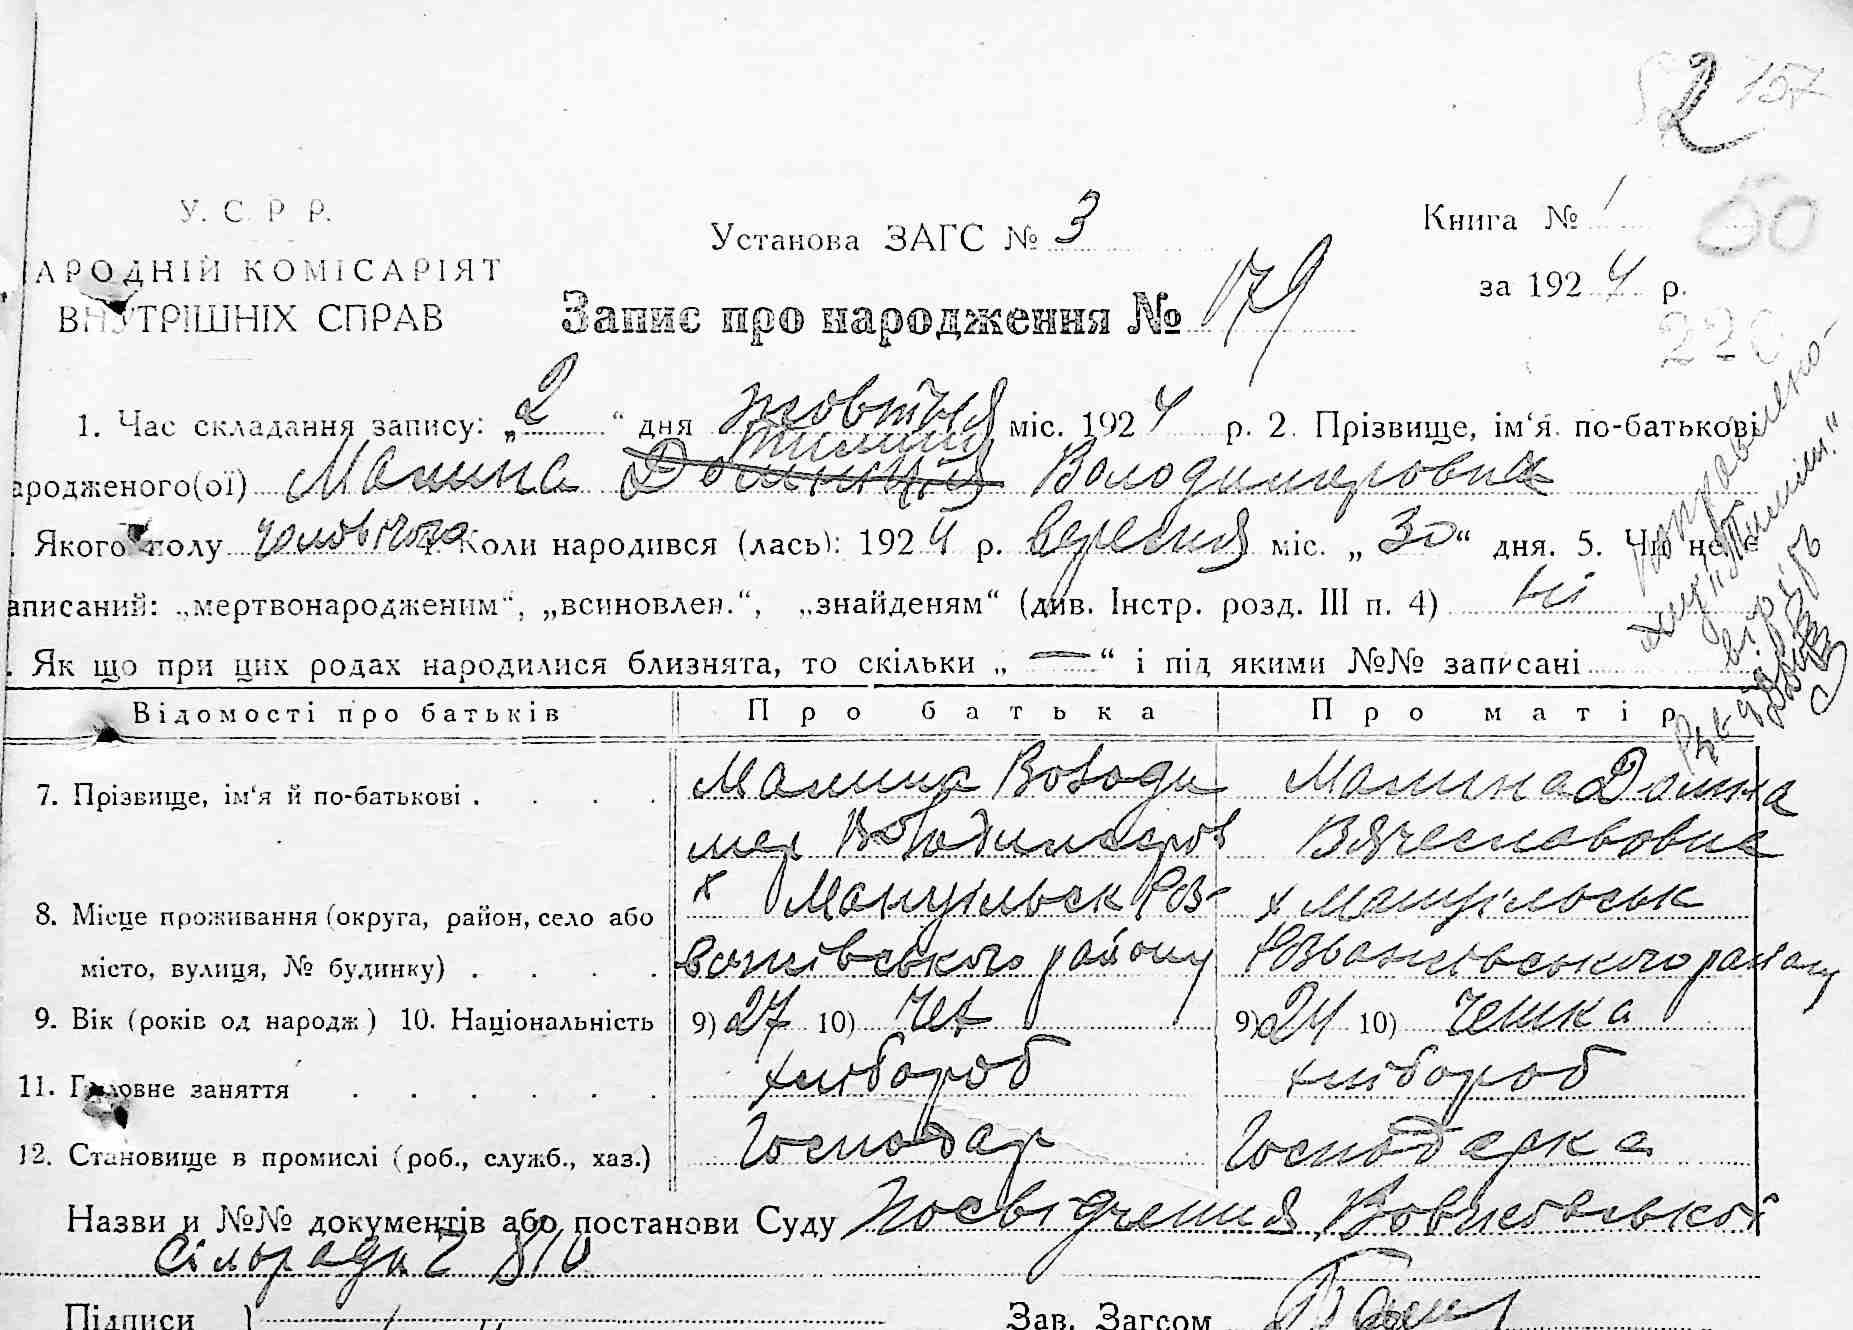 2 157
У. С. Р. Р.
АРОДНІЙ КОМІСАРІЯТ
ВНУТРІШНІХ СПРАВ
Установа ЗАГС № 3
Книга № 1
60
за 1924 р.
Запис про народження № 179
220
1. Час складання запису: „2“ дня жовтня міс. 1924 р. 2. Прізвище, ім‘я по-батькові
ародженого(ої) Малина Володимирович
. Якого полу чоловічого 4. Коли народився (лась): 1924 р. вересня міс. „30“ дня. 5. Чи не є
аписаний: „мертвонародженим“, „всиновлен.“, „знайденям“ (див. Інстр. розд. III п. 4) ні
. Як що при цих родах народилися близнята, то скільки „—“ і під якими №№ записані
Відомості про батьків Про батька Про матір
7. Прізвище, ім‘я й по-батькові . . . . Малина Володи Малина Домна
мер Володимиров Вячеславовна
8. Місце проживання (округа, район, село або х Мануїльск Роз- х Мануїльськ
місто, вулиця, № будинку) . . . . важівського району Розважівського району
9. Вік (років од народж) 10. Національність 9) 27 10) Чех 9) 24 10) Чешка
11. Головне заняття . . . . . . хлібороб хлібороб
12. Становище в промислі (роб., служб., хаз.) Господар Господарка
Назви и №№ документів або постанови Суду Посвідчення Вовчковської
Сільради 810
Підписи Зав. Загсом